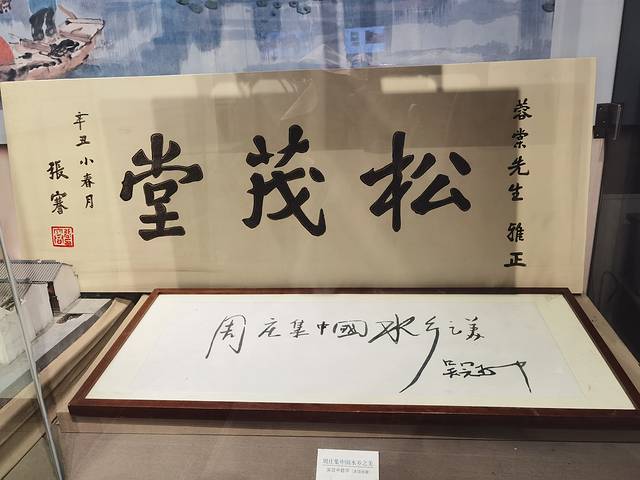 蓉棠先生 雅正
松茂堂
辛丑小春月
張謇
周庄集中國水乡之美
吴冠中
周庄集中国水乡之美
吴冠中题字